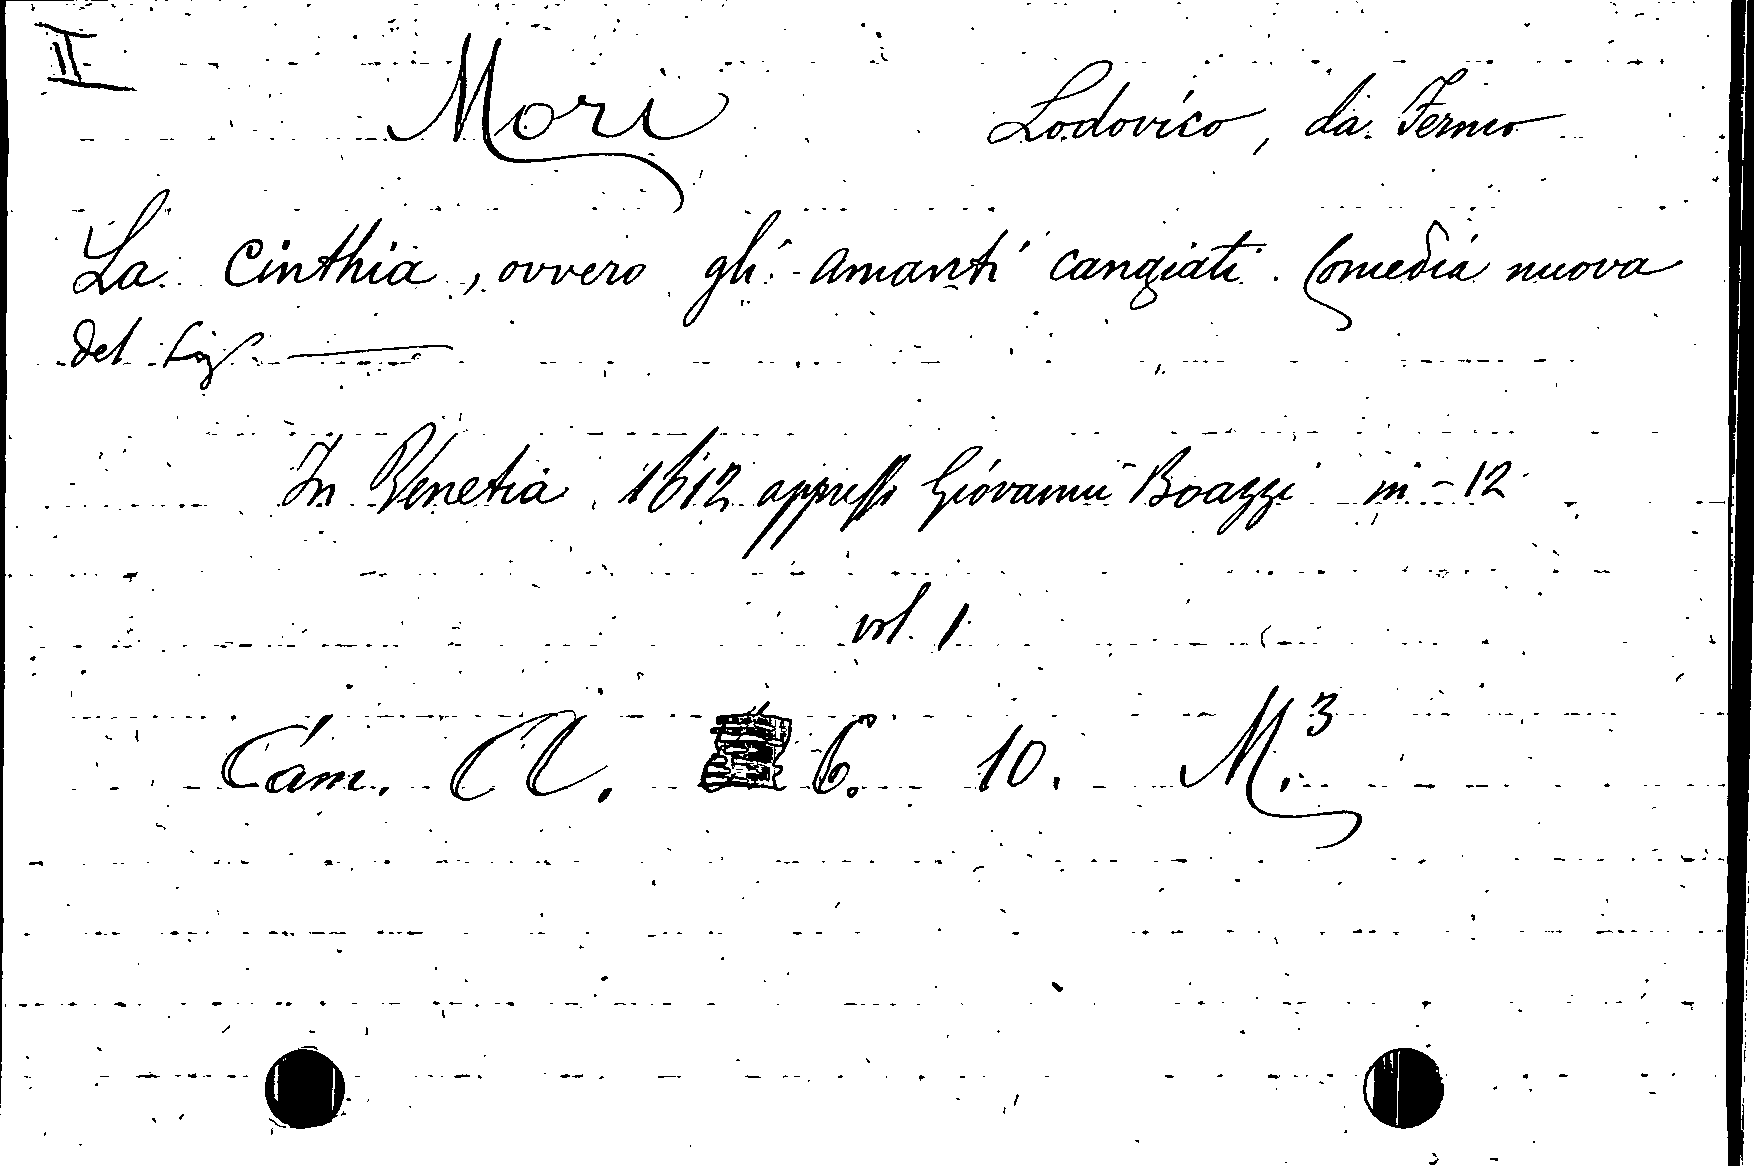 II
Mori Lodovico, da Fermo
La Cinthia, ovvero gli amanti cangiati. Comedia nuova
del Sig. ———
In Venetia 1612 appresso Giovanni Boazzi in-12
vol. 1
Cam. A. 6. 10. M.³